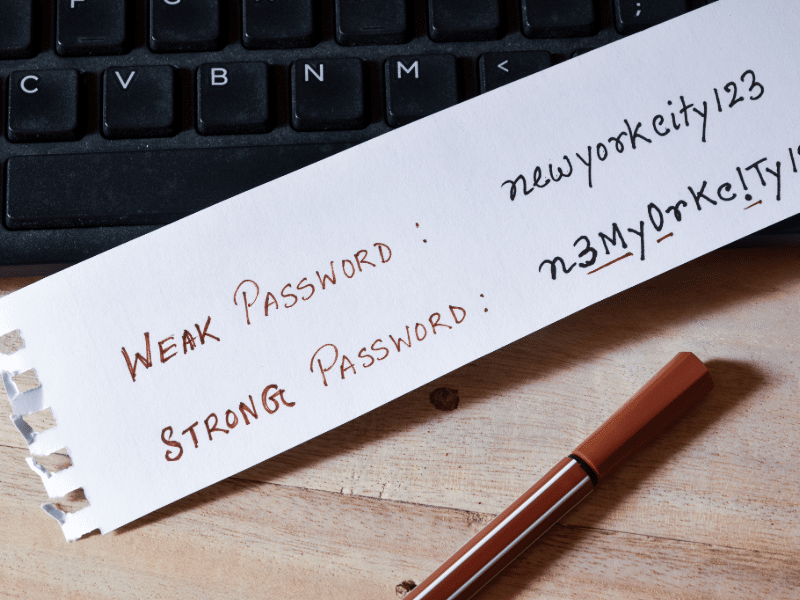 C V B N M <
;
WEAK PASSWORD : newyorkcity123
STRONG PASSWORD : n3MyOrKc!Ty1